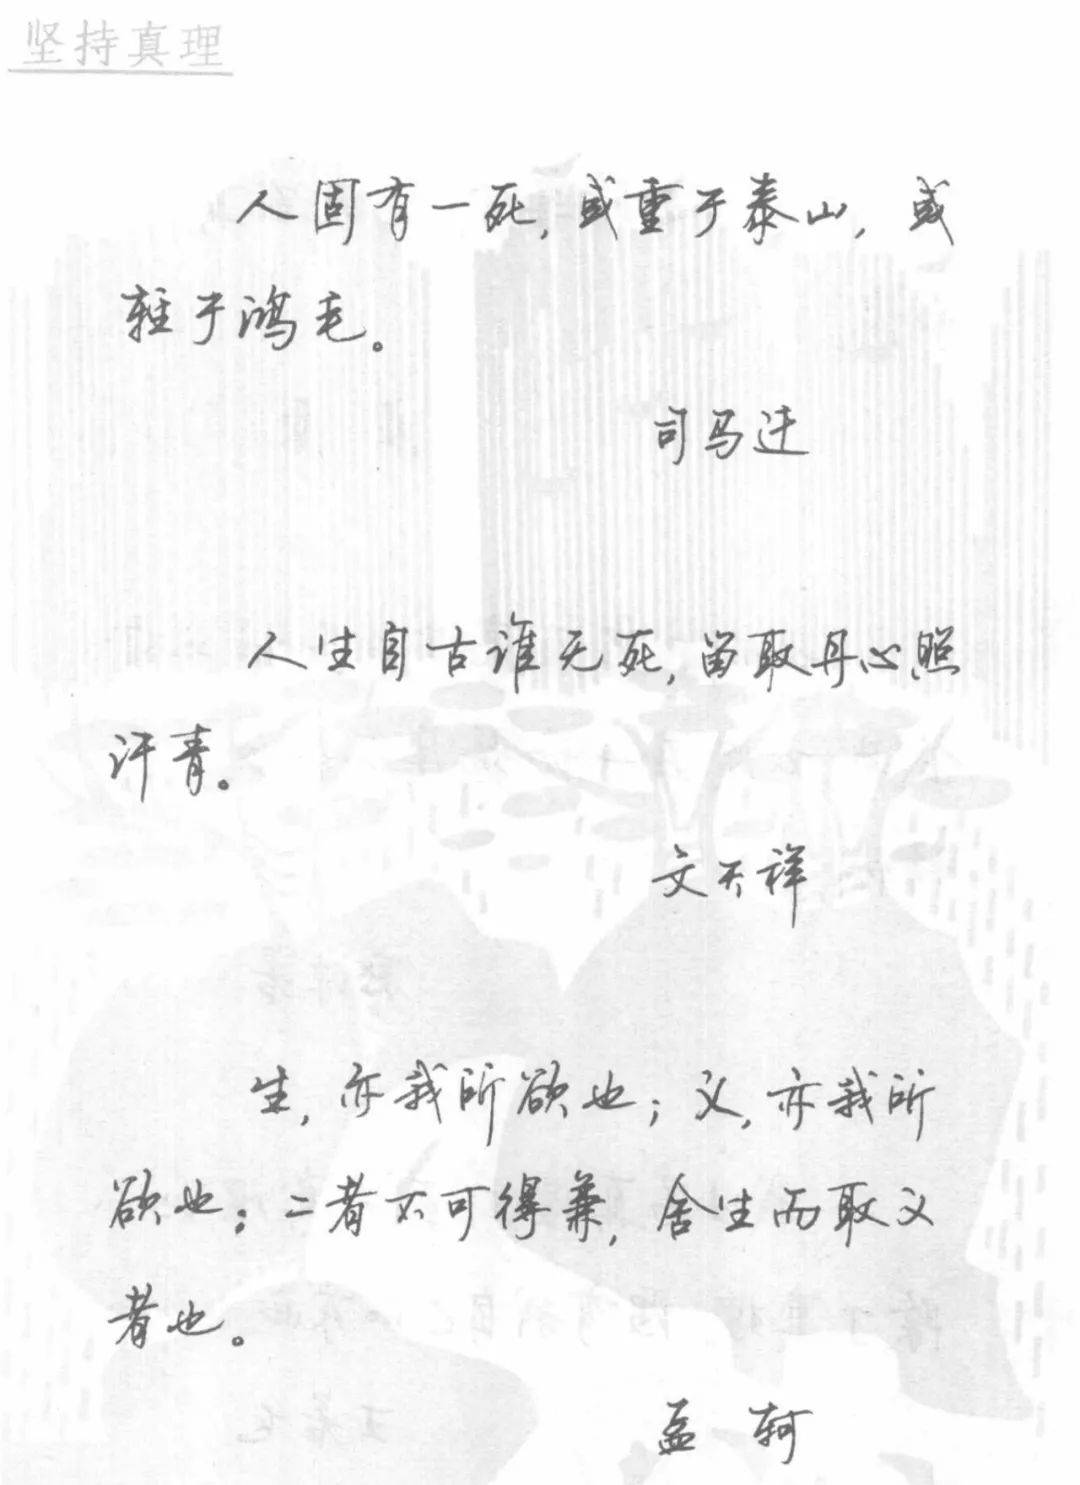 坚持真理
人固有一死,或重于泰山,或
轻于鸿毛。
司马迁
人生自古谁无死,留取丹心照
汗青。
文天祥
生,亦我所欲也;义,亦我所
欲也;二者不可得兼,舍生而取义
者也。
孟轲